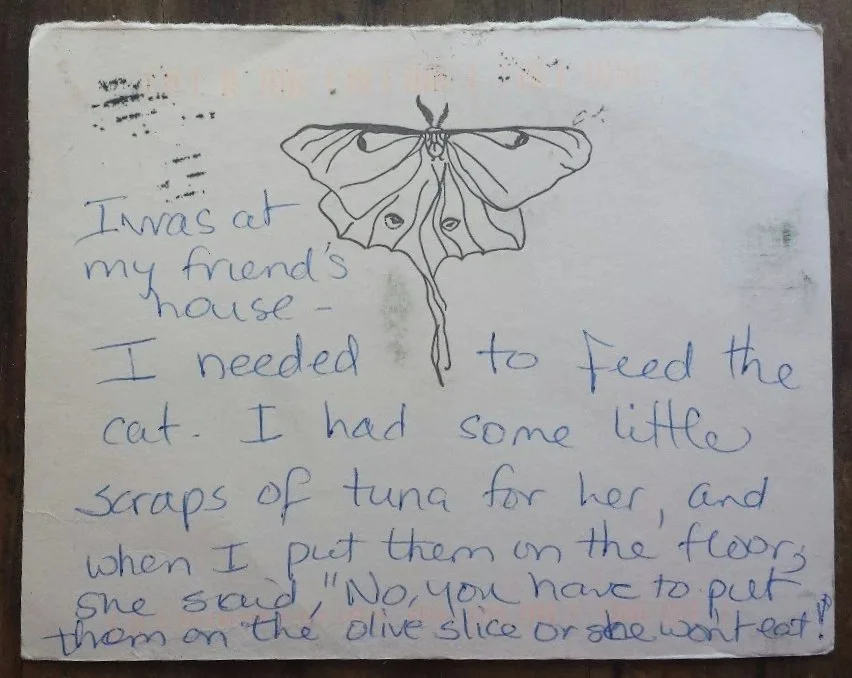 I was at
my friend's
house -
I needed to feed the
cat. I had some little
scraps of tuna for her, and
when I put them on the floor,
she said, "No, you have to put
them on the olive slice or she won't eat!"